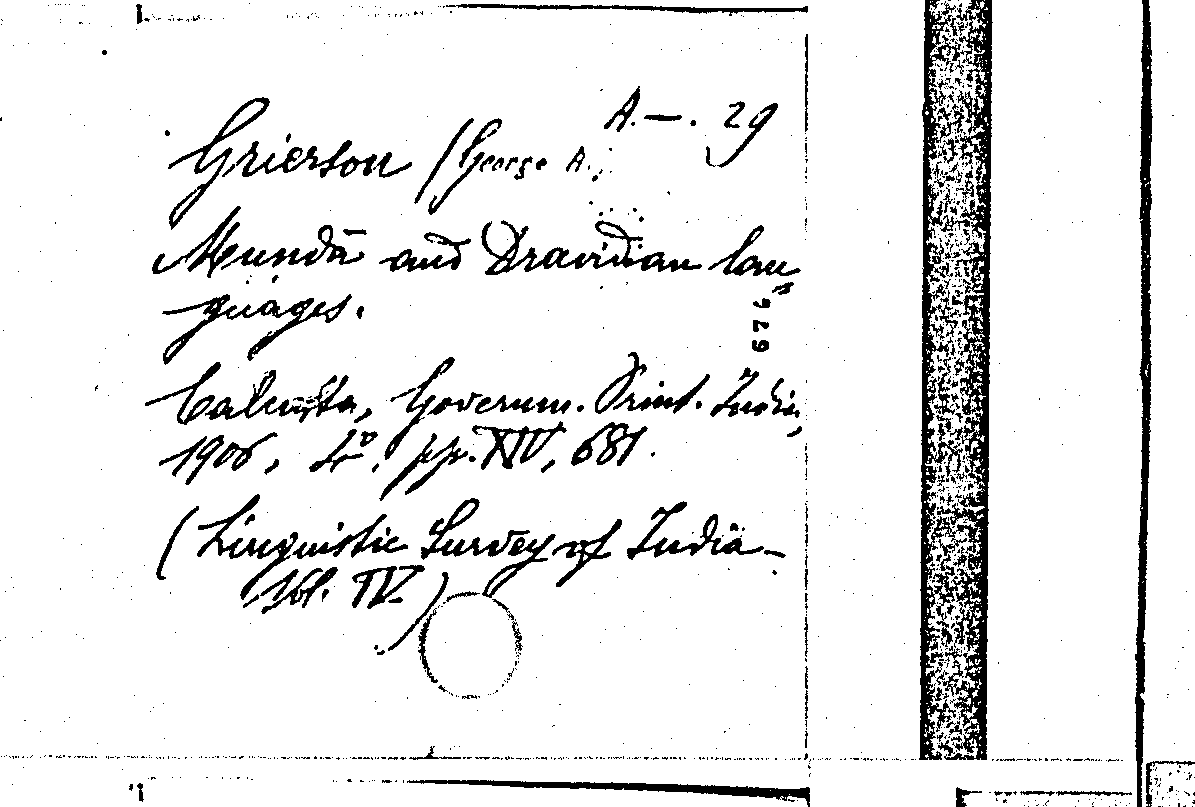 A. — . 29
Grierson (George A.
Mundā and Dravidian lan
guages.
Calcutta, Governm. Print. India,
1906, 4°. pp. XIV, 681.
(Linguistic Survey of India -
Vol. IV)